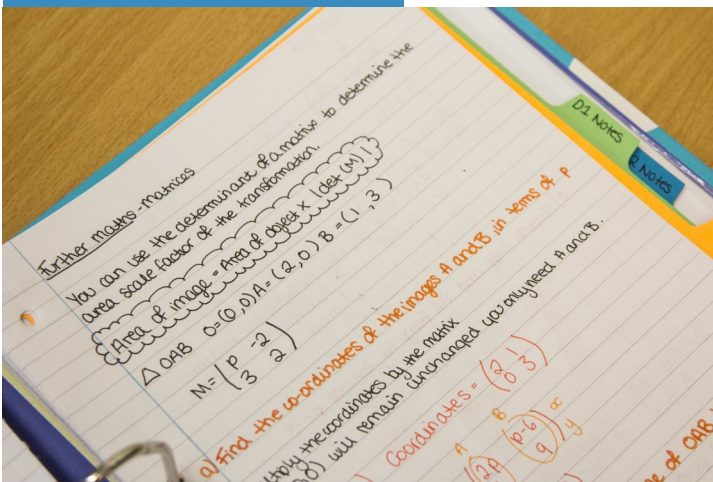 Further maths - matrices
You can use the determinant of a matrix to determine the
area scale factor of the transformation.
Area of image = Area of object × |det (M)|
△ OAB O=(0,0) A=(2,0) B=(1,3)
M = (p -2
3 2)
a) Find the co-ordinates of the images A and B, in terms of p
the coordinates by the matrix
will remain unchanged you only need A and B.
Coordinates = (2 1
0 3)
A B
2p p-6 x
9 y
of OAB
D1 Notes
Notes